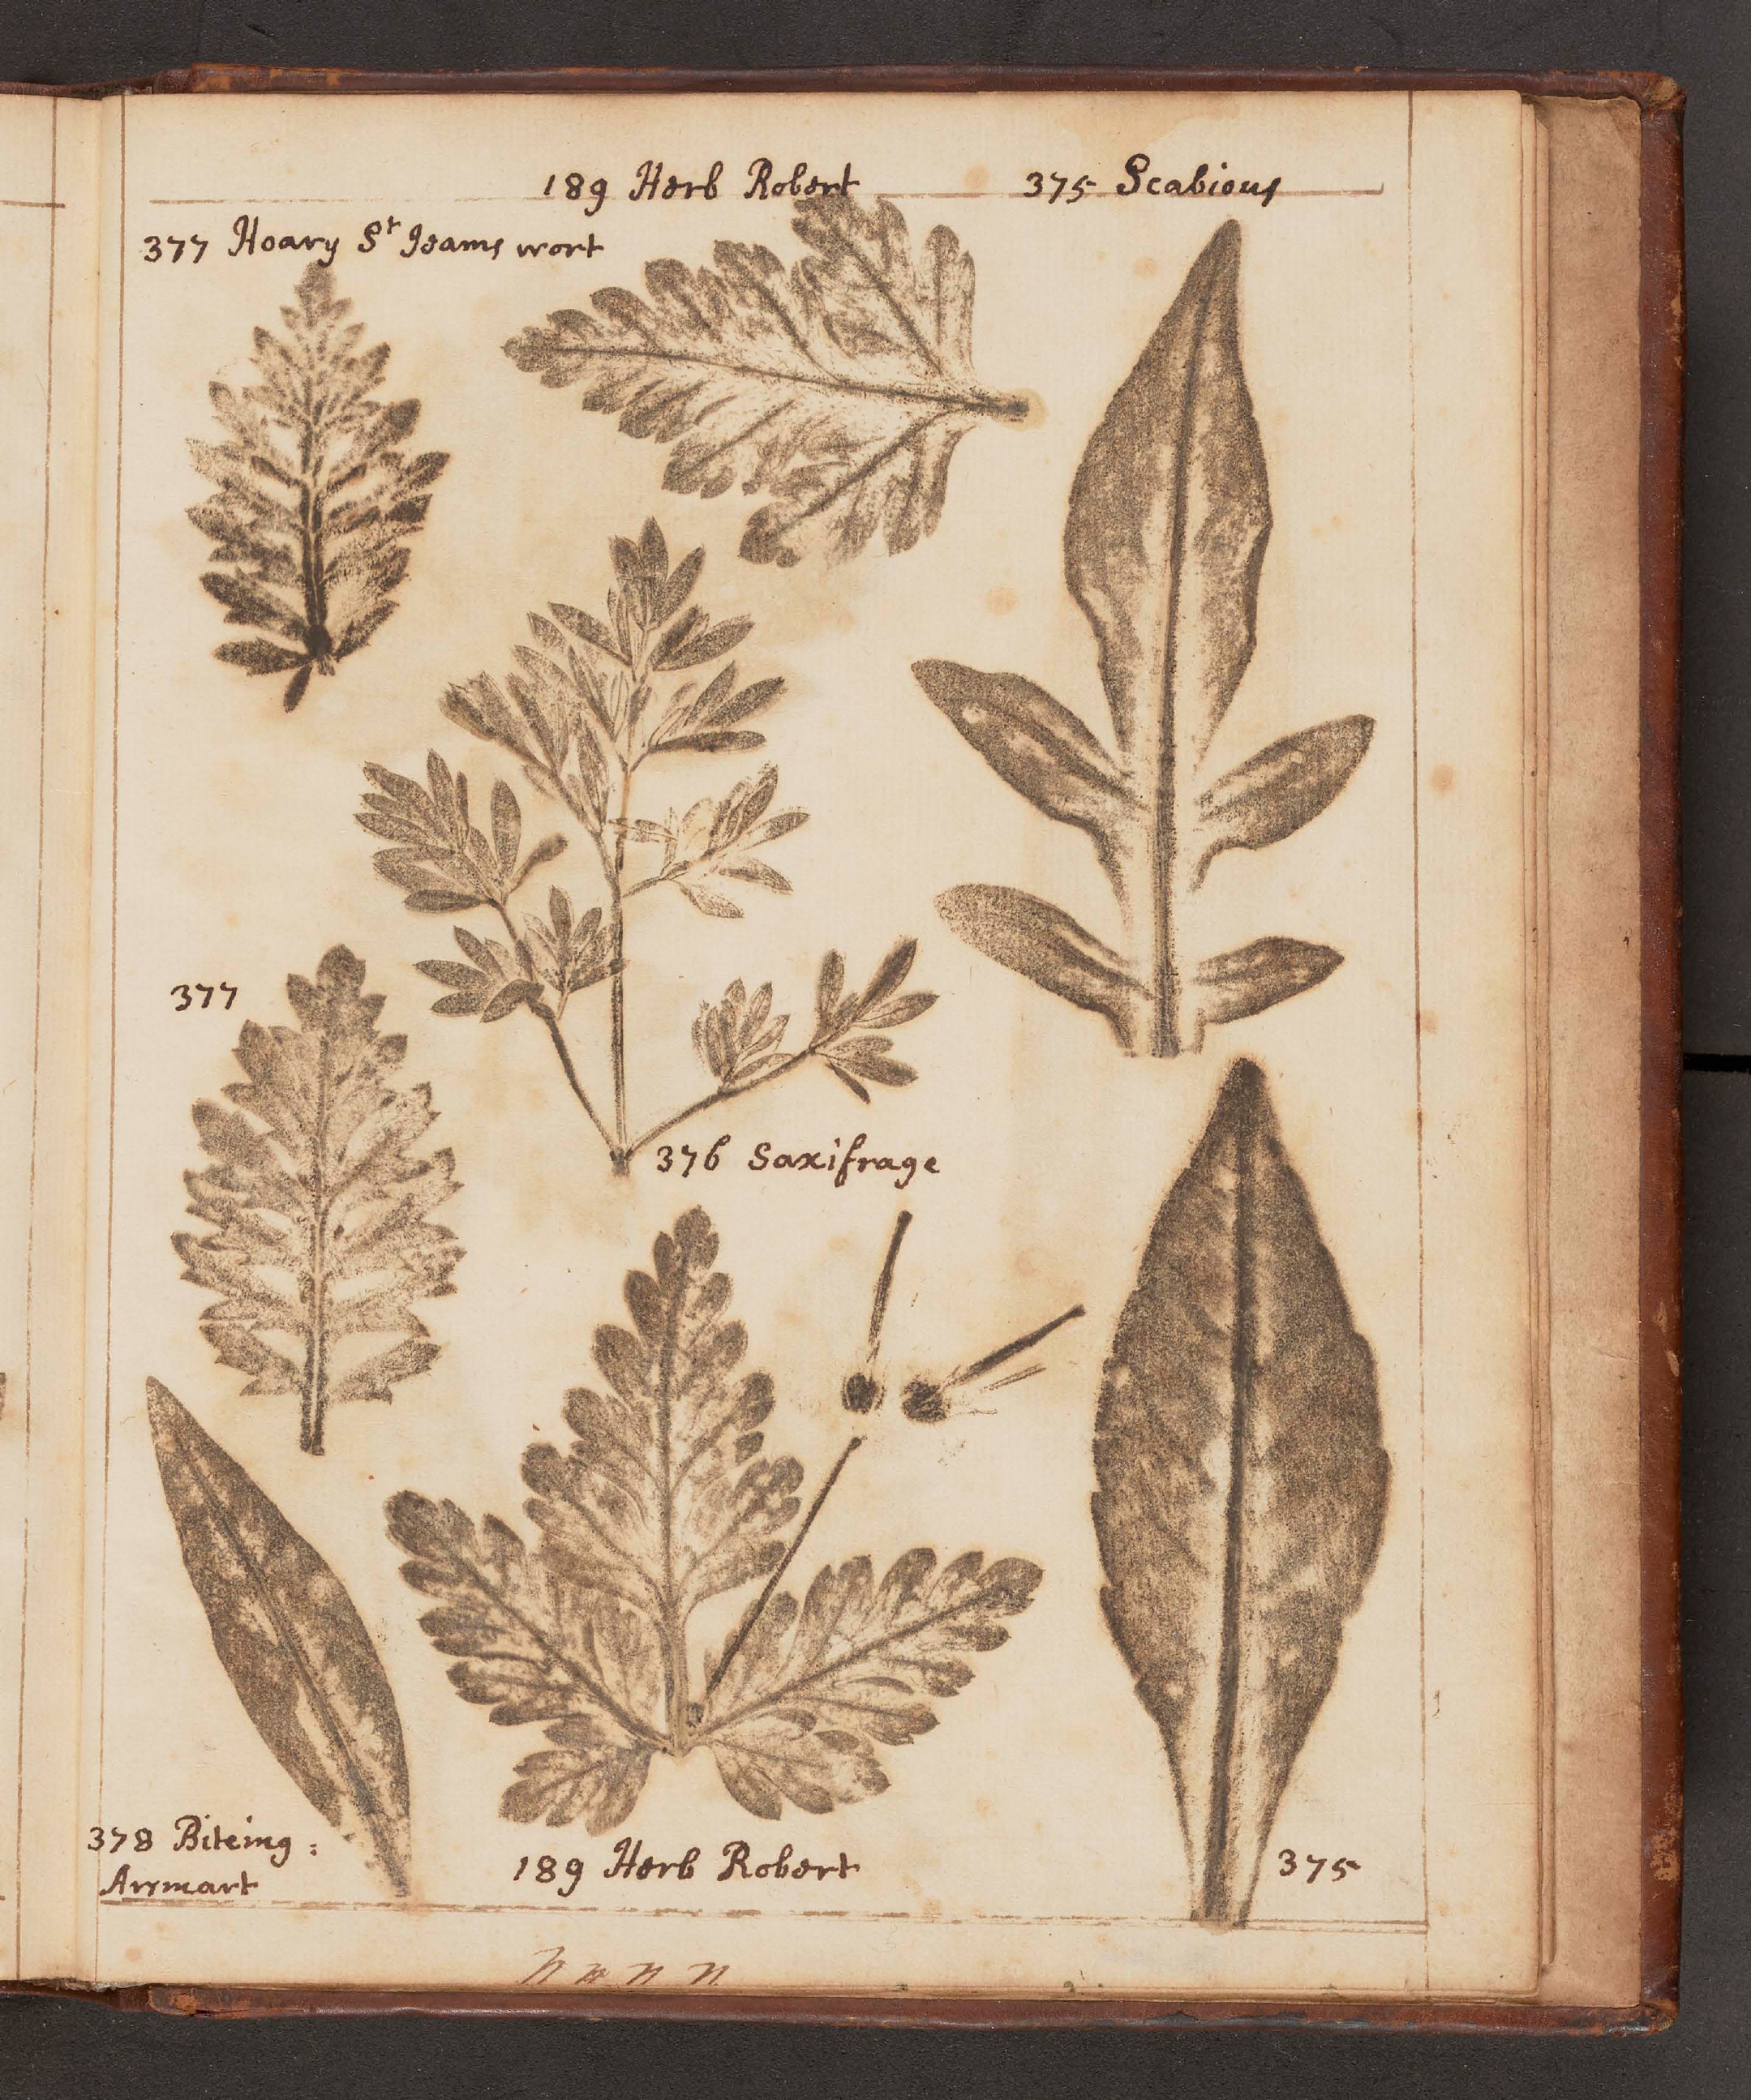 189 Herb Robert
375 Scabious
377 Hoary St Jeams wort
377
376 Saxifrage
378 Biteing :
Arsmart
189 Herb Robert
375